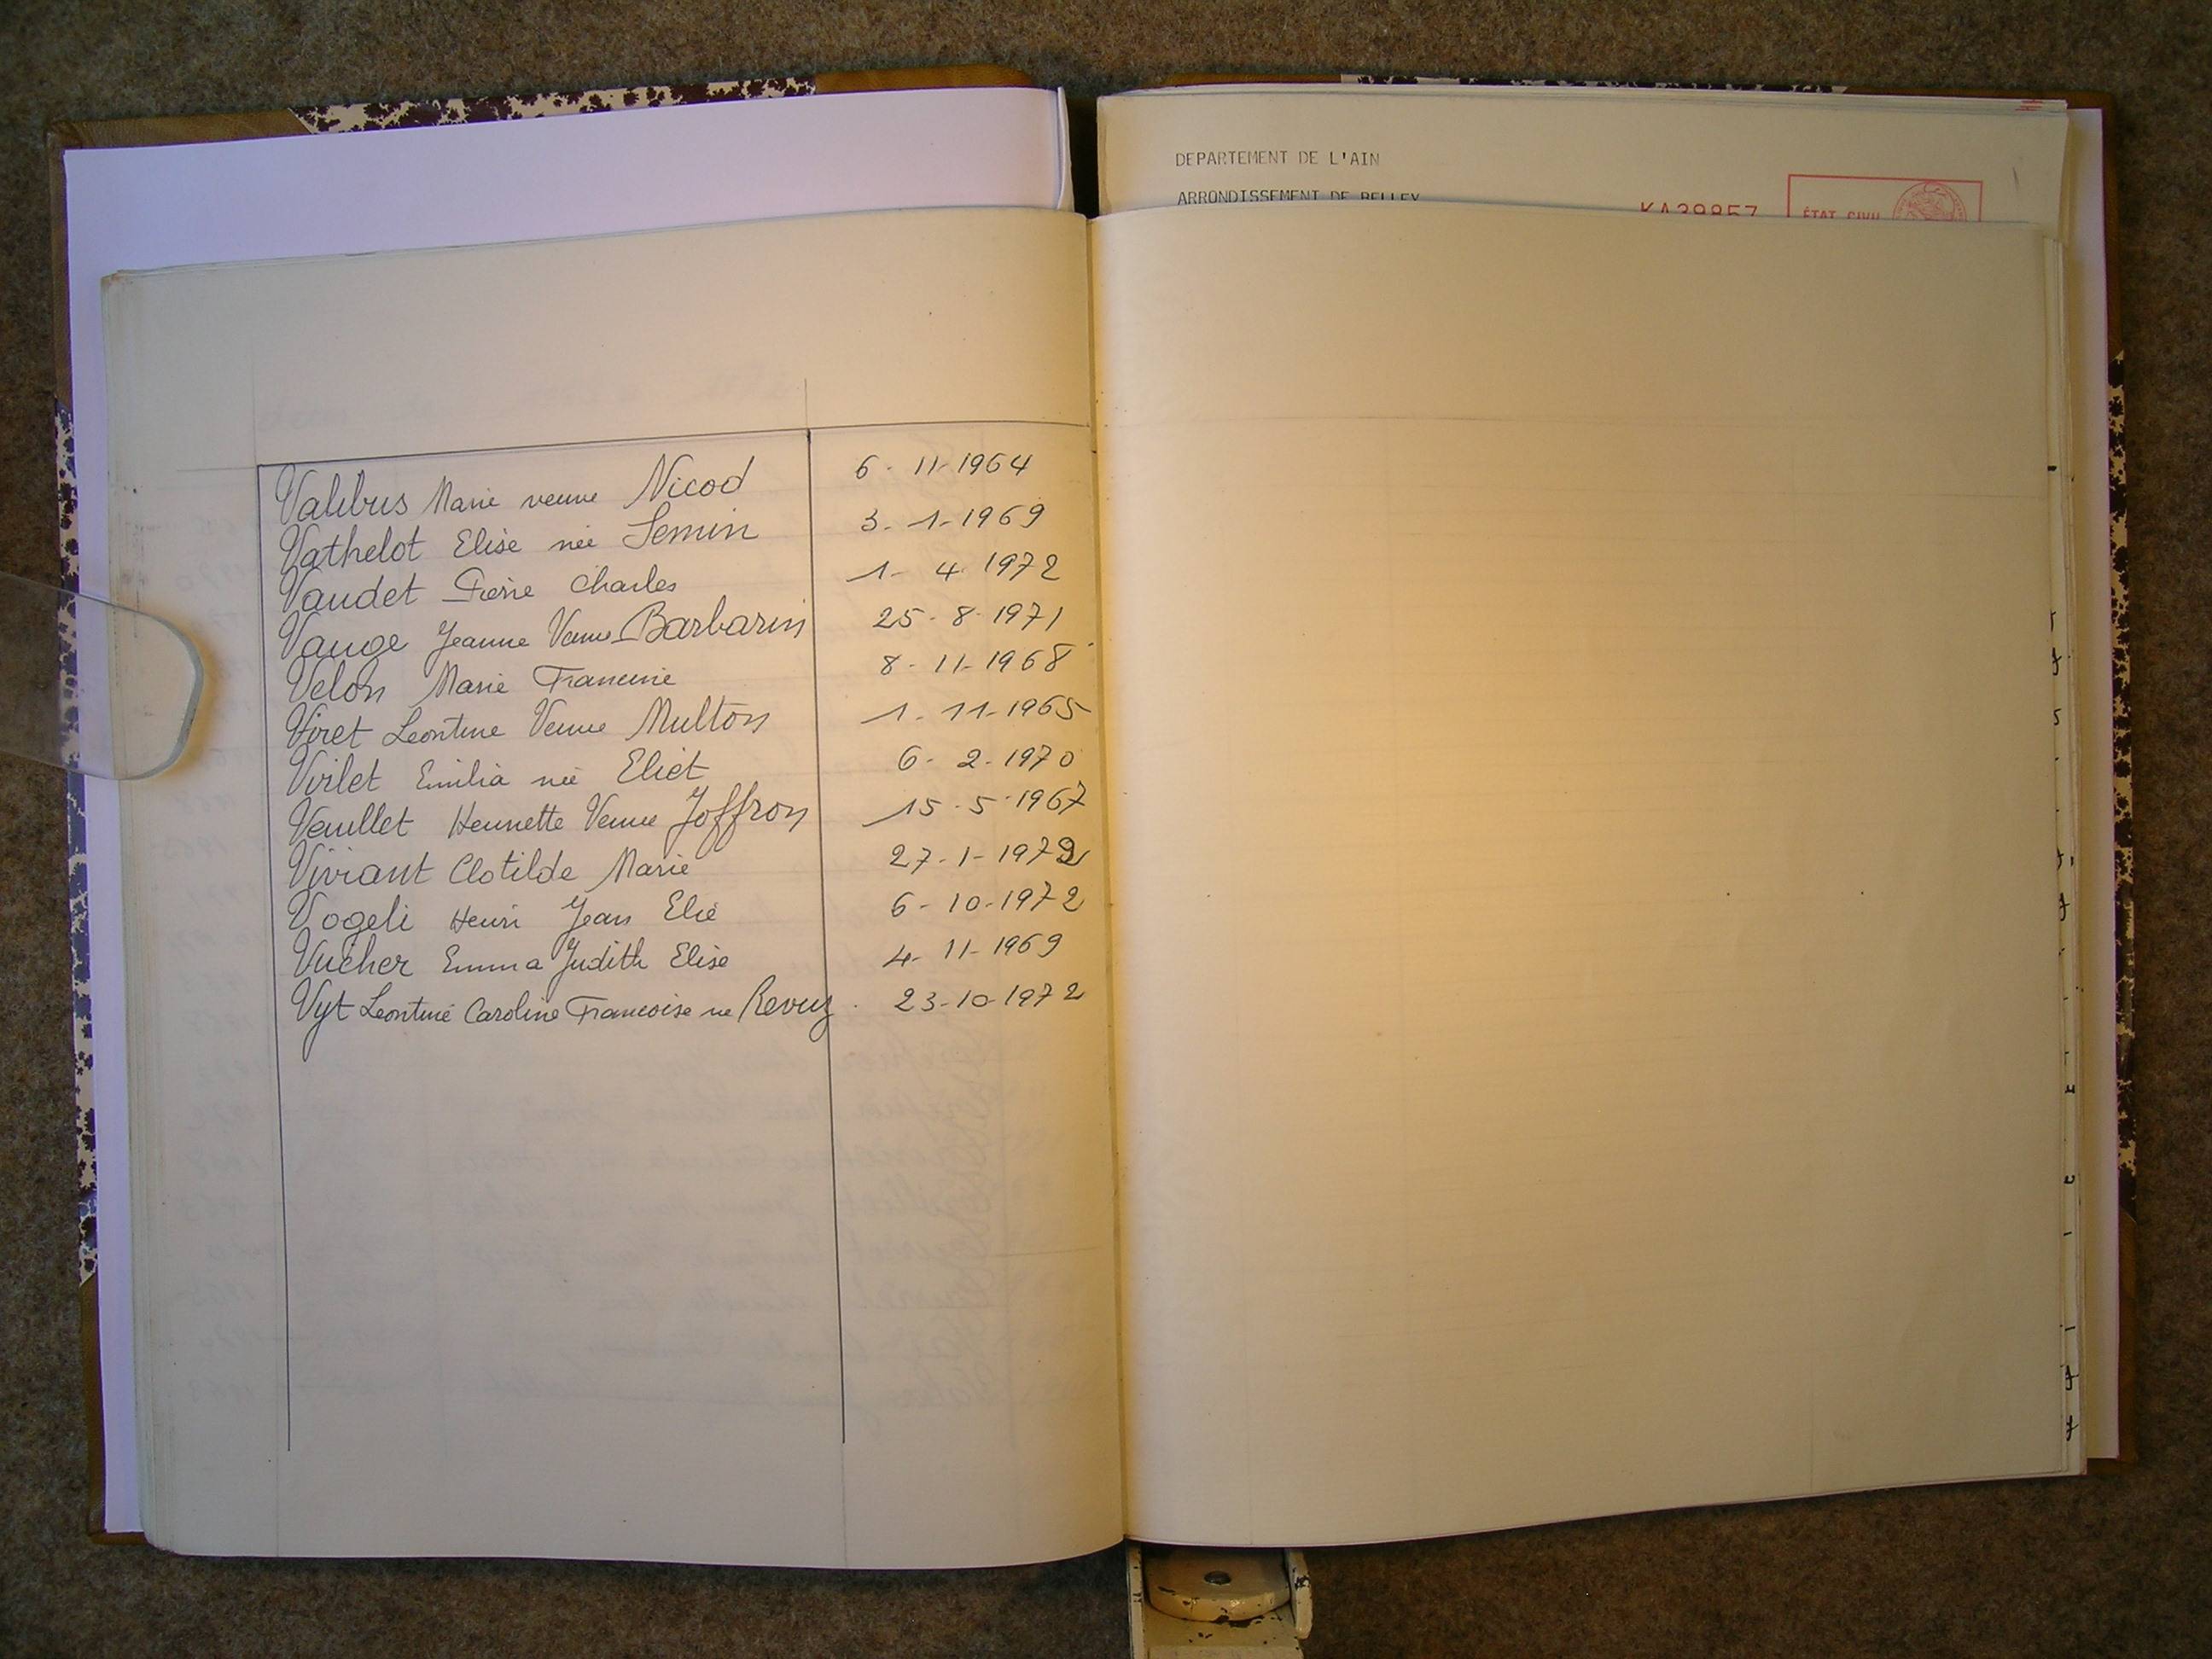 Valibus Marie veuve Nicod 6 - 11-1964
Vathelot Elise née Semin 3-1-1969
Vaudet Pierre Charles 1- 4 1972
Vauge Jeanne Veuve Barbarin 25-8-1971
Velon Marie Francine 8-11-1968
Viret Leontine Veuve Multon 1-11-1965
Virlet Emilia née Eliet 6-2-1970
Veuillet Henriette Veuve Joffron 15-5-1967
Viviant Clotilde Marie 27-1-1972
Vogeli Henri Jean Elie 6-10-1972
Vucher Emma Judith Elise 4-11-1969
Vyt Leontine Caroline Francoise ne Revuz. 23-10-1972
DEPARTEMENT DE L'AIN
ARRONDISSEMENT DE BELLEY
KA39857
ÉTAT CIVIL